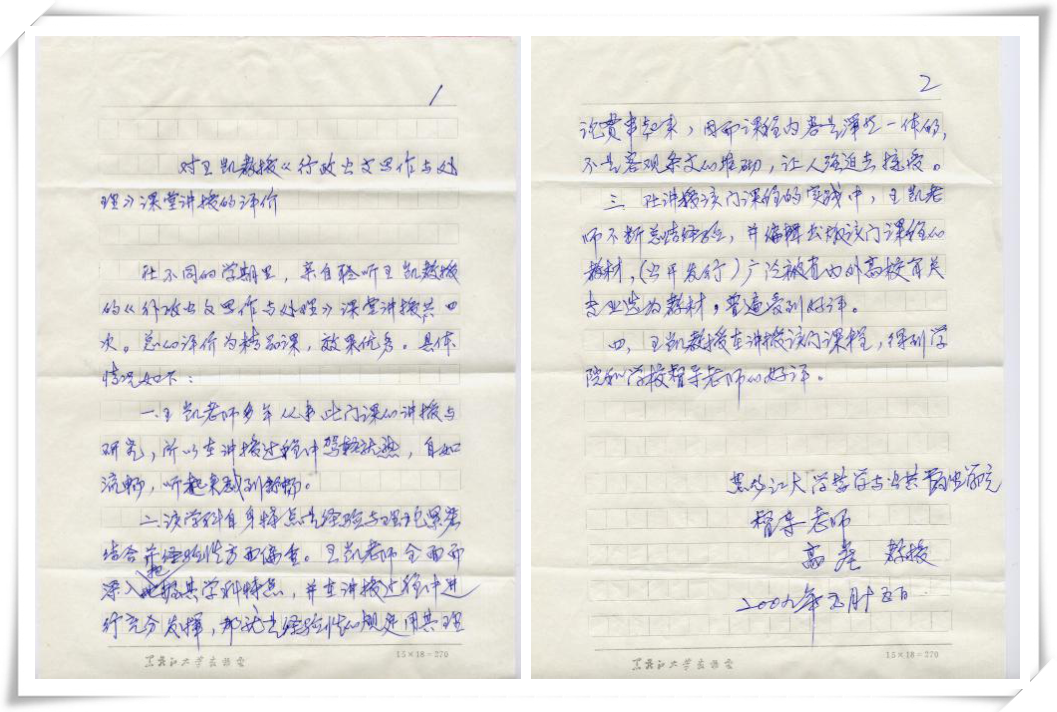 1
对王凯教授《行政公文写作与处
理》课堂讲授的评价
在不同的学期里，亲自聆听王凯教授
的《行政公文写作与处理》课堂讲授共四
次。总的评价为精品课，效果优秀。具体
情况如下：
一、王凯老师多年从事此门课的讲授与
研究，所以在讲授过程中驾轻就熟，自如
流畅，听起来感到舒畅。
二、该学科自身特点是经验与理论紧密
结合并经验性方面偏重。王凯老师全面而
深入地把握其学科特点，并在讲授过程中进
行充分发挥，那就是经验性的规定用其理
黑龙江大学
15×18=270
2
论贯串起来，因而课程内容是浑然一体的，
不是客观条文的堆砌，让人强迫去接受。
三、在讲授该门课程的实践中，王凯老
师不断总结经验，并编辑出版该门课程的
教材，（公开发行）广泛被省内外高校有关
专业选为教材，普遍受到好评。
四、王凯教授在讲授该门课程，得到学
院和学校督导老师的好评。
黑龙江大学哲学与公共管理学院
督导老师
高 教授
年五月十五日
黑龙江大学
15×18=270